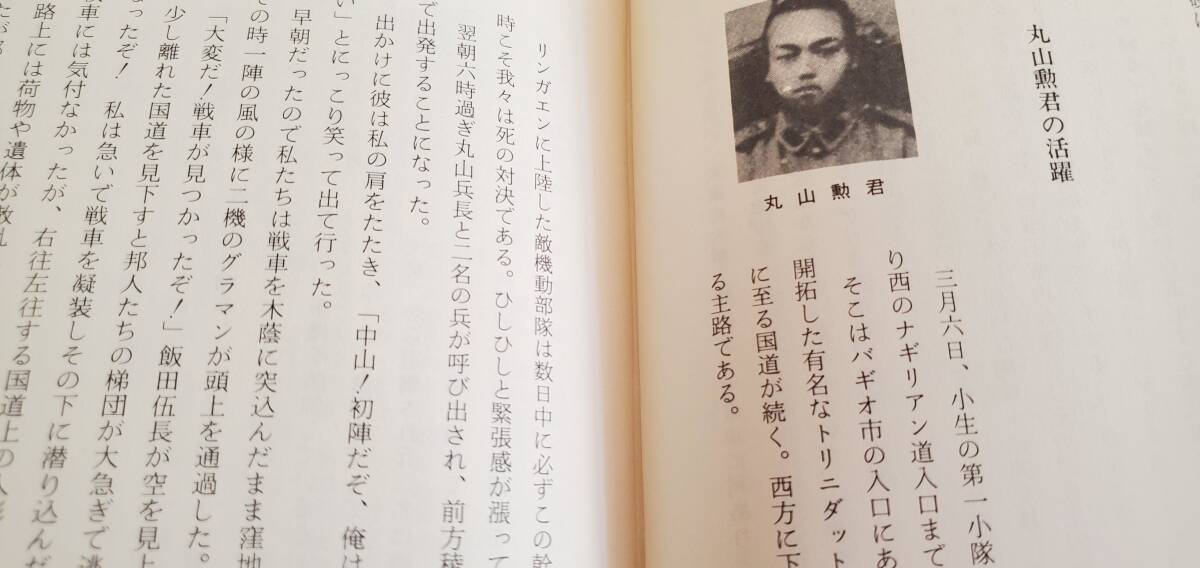 丸山勲君の活躍
丸山勲君
三月六日、小生の第一小隊
り西のナギリアン道入口まで
そこはバギオ市の入口にあ
開拓した有名なトリニダット
に至る国道が続く。西方に下
る主路である。
リンガエンに上陸した敵機動部隊は数日中に必ずこの幹
時こそ我々は死の対決である。ひしひしと緊張感が漲って
翌朝六時過ぎ丸山兵長と二名の兵が呼び出され、前方稜
で出発することになった。
出かけに彼は私の肩をたたき、「中山!初陣だぞ、俺は
い」とにっこり笑って出て行った。
早朝だったので私たちは戦車を木蔭に突込んだまま窪地
その時一陣の風の様に二機のグラマンが頭上を通過した。
「大変だ!戦車が見つかったぞ!」飯田伍長が空を見上
少し離れた国道を見下すと邦人たちの梯団が大急ぎで逃
なったぞ! 私は急いで戦車を凝装しその下に潜り込んだ
戦車には気付なかったが、右往左往する国道上の人
路上には荷物や遺体が散乱